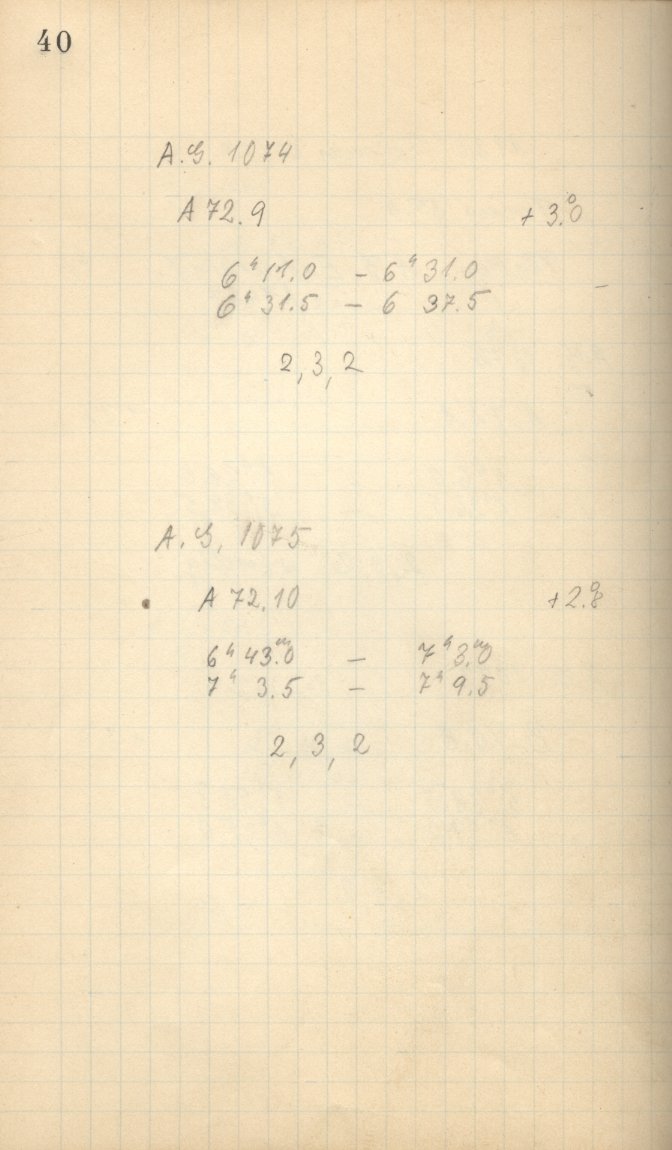 40
A.G. 1074
A 72.9 +3.°0
6ʰ 11.0 – 6ʰ 31.0
6ʰ 31.5 – 6 37.5
2, 3, 2
A. G. 1075
A 72.10 +2.°8
6ʰ 43.ᵐ0 – 7ʰ 3.ᵐ0
7ʰ 3.5 – 7ʰ 9.5
2, 3, 2